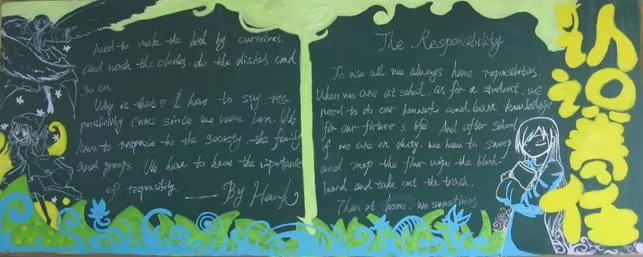 The Responsibility
To use all. we always have reponsibilities.
When we are at school. as for a student. we
need to do our homework and learn knowledge
for our furture's life. And after school
if we are on duty. we have to sweep
and mop the floor wipe the black-
board and take out the trash.
Then at home. We sometimes
need to make the bed by ourselves.
and wash the clothes. do the dishes and
so on.
Why is that? I have to say. res-
ponsibility came since we were born. We
have to response to the society. the family
and groups. We have to know the importance
of responsibility.
—— By